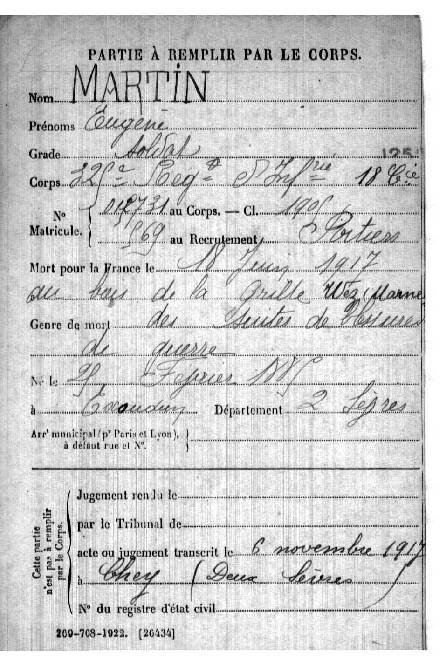 PARTIE À REMPLIR PAR LE CORPS.
Nom MARTIN
Prénoms Eugène
Grade soldat
Corps 325e Regt d'Infrie 18 Cie
N° Matricule. { 018731 au Corps. — Cl. 1905
869 au Recrutement Poitiers
Mort pour la France le 18 Juin 1917
au bois de la Grille Wez (Marne
Genre de mort des suites de blessures
de guerre
Né le 25 Février
à Exoudun Département 2 Sèvres
Arrt municipal (pr Paris et Lyon), à défaut rue et N°. }
Cette partie n'est pas à remplir par le Corps.
Jugement rendu le
par le Tribunal de
acte ou jugement transcrit le 6 novembre 1917
à Chey (Deux Sèvres)
N° du registre d'état civil
269-708-1922. [26434]